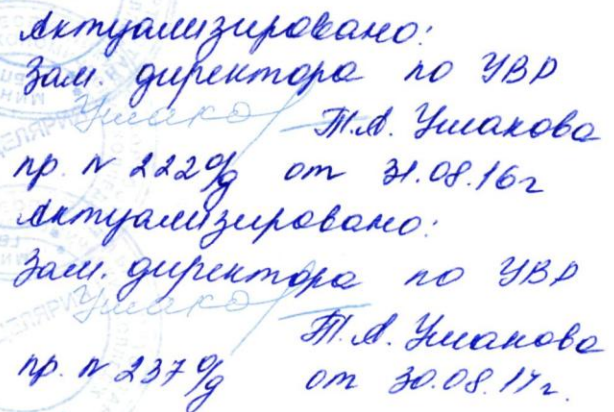 Актуализировано:
Зам. директора по УВР
Ушако
Т.А. Ушакова
пр. N 222 о/д от 31.08.16г
Актуализировано:
Зам. директора по УВР
Ушако
Т.А. Ушакова
пр. N 237 о/д от 30.08.17г.